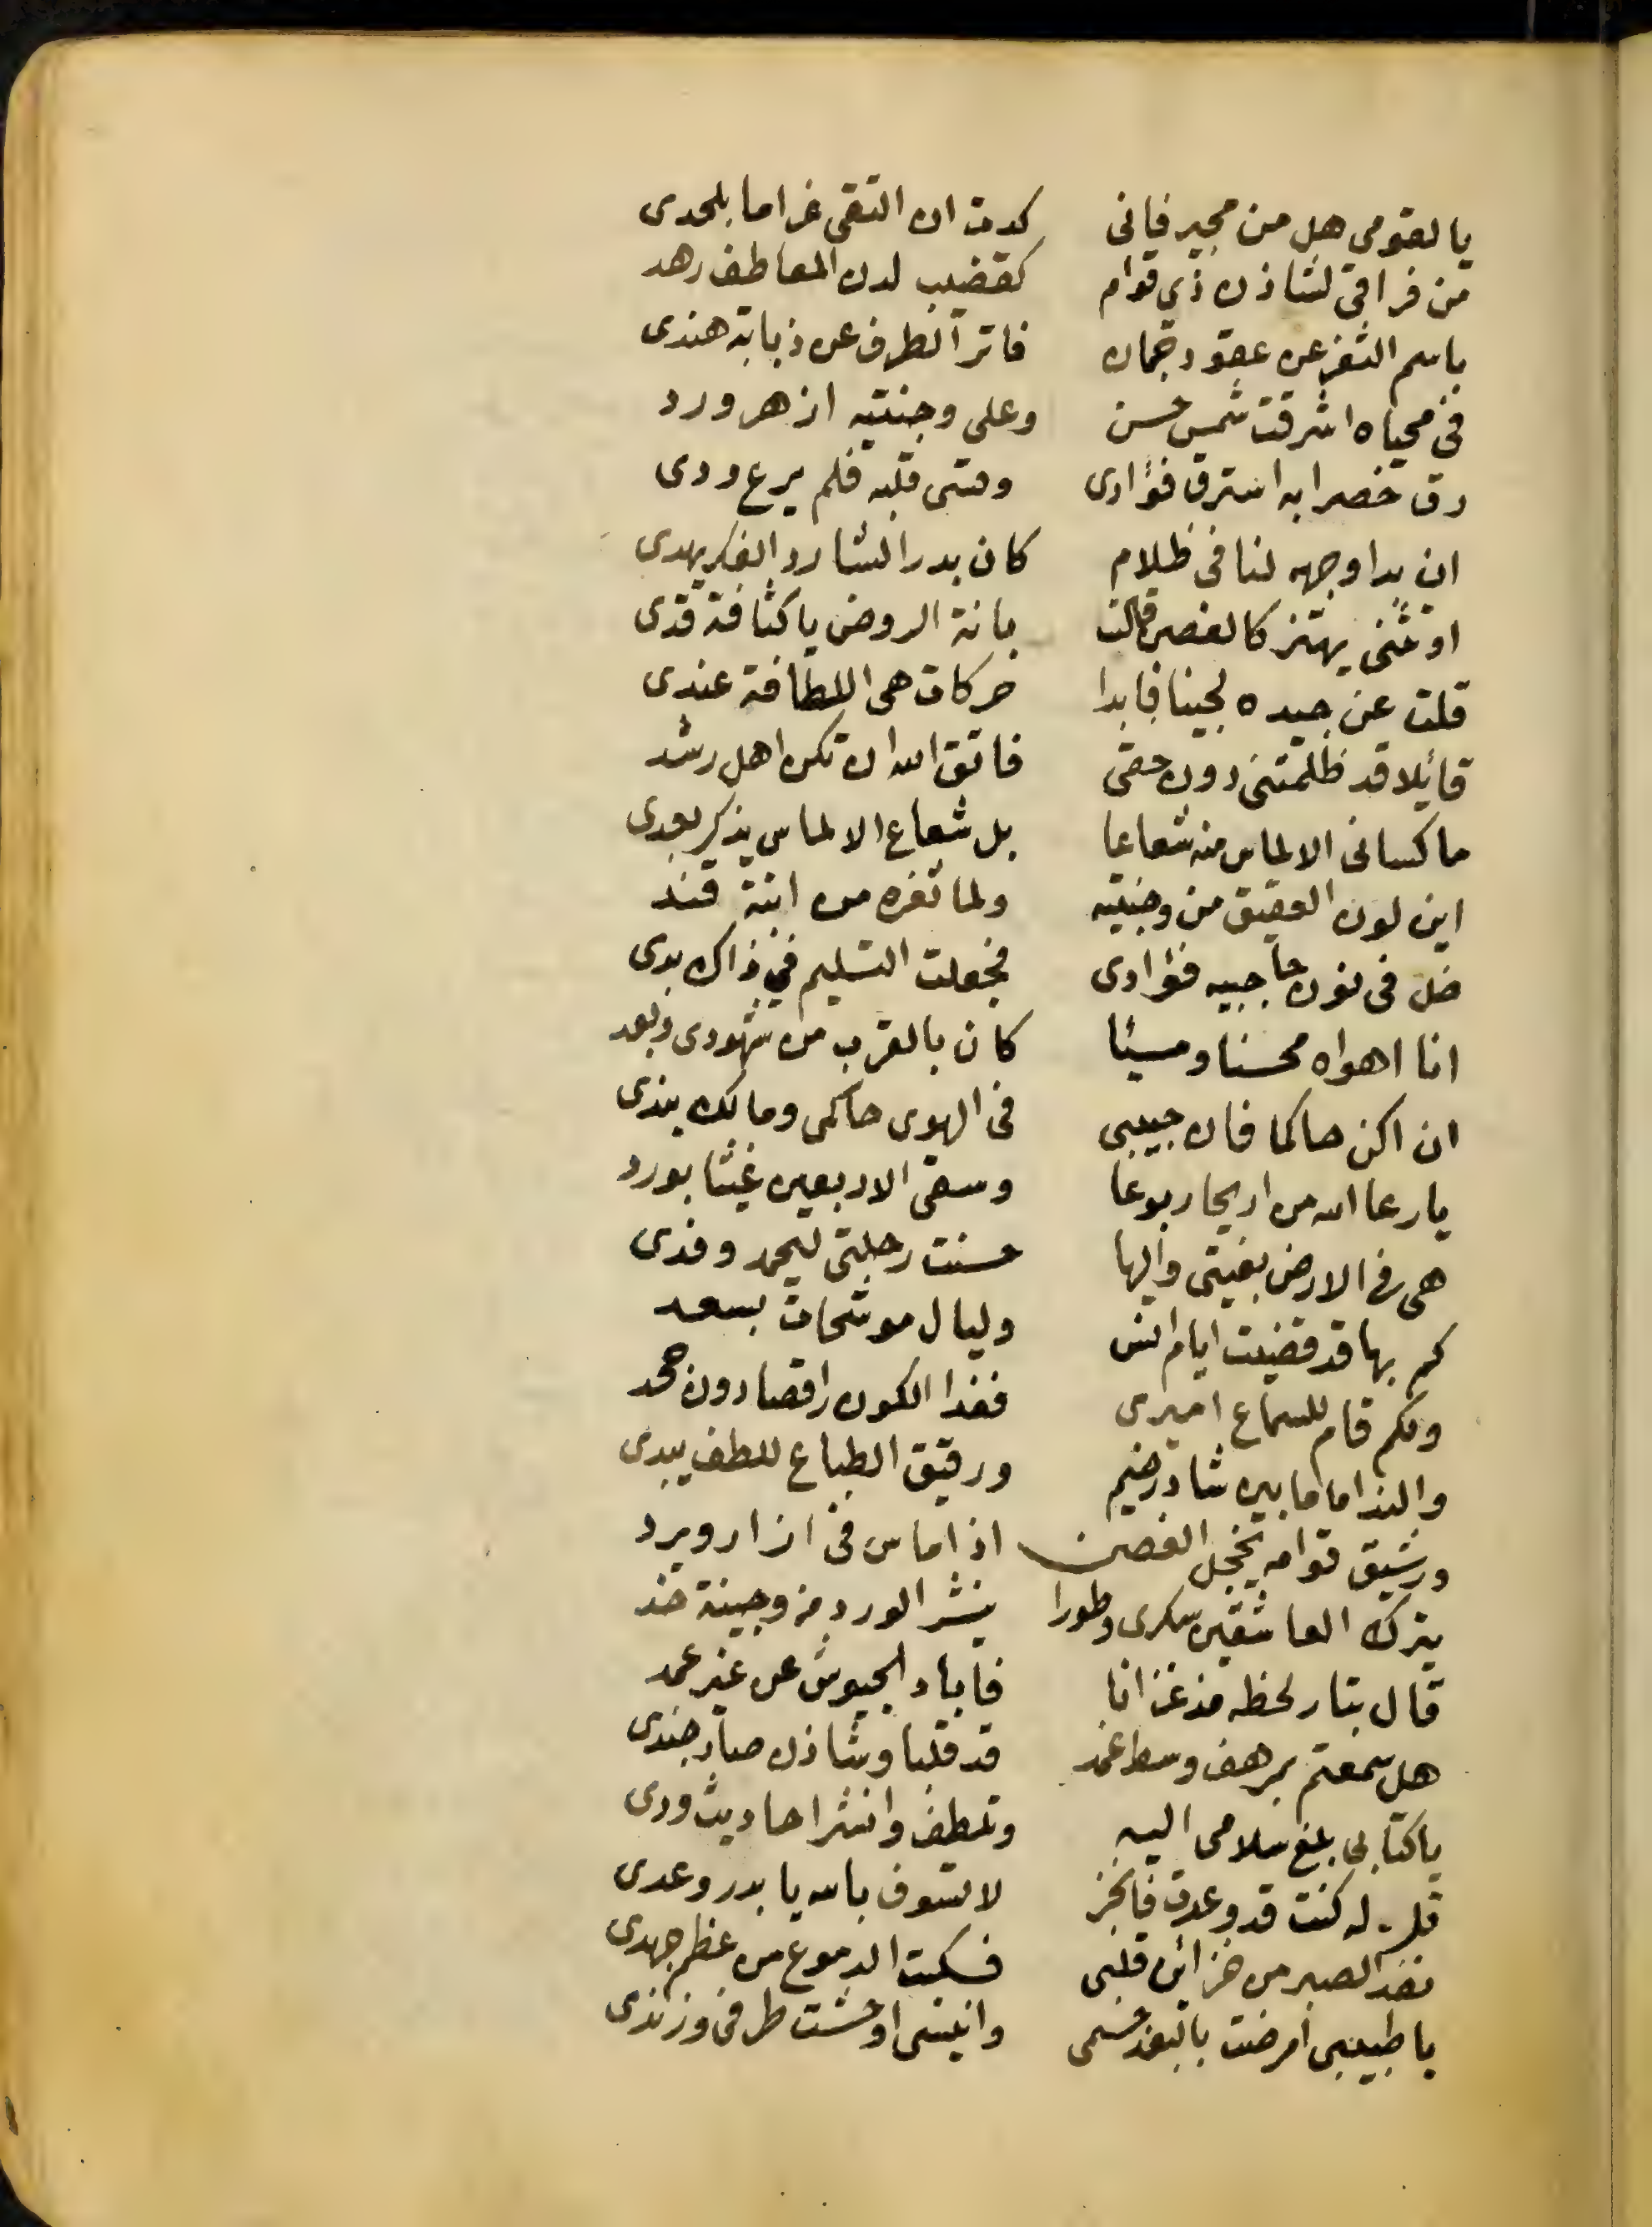 يا لقومى هل من مجير فانى كدت ان التقى غراما بلحدى
من فراقى لشاذن ذى قوام كقضيب لدن المعاطف رهد
باسم الثغر عن عقود جمان فاتر الطرف عن ذبابة هندى
فى محياه اشرقت شمس حسن وعلى وجنتيه ازهر ورد
رق خصرا به استرق فؤادى وقسى قلبه فلم يرع ودى
ان بدا وجهه لنا فى ظلام كان بدرا لشارد الفكر يهدى
او تثنى يهتز كالغصن قالت بانة الروض يا كثافة قدى
قلت عن جيده لجينا فابدا حركات هى اللطافة عندى
قائلا قد ظلمتنى دون حقى فاتق الله ان تكن اهل رشد
ما كسانى الالماس منه شعاعا بل شعاع الالماس يذكر بعدى
اين لون العقيق من وجنتيه ولما ثغره من ابنة قند
ضل فى نون حاجبيه فؤادى فجعلت التسليم فى ذاك بدى
انا اهواه محسنا ومسيئا كان بالقرب من شهودى وبعد
ان اكن حاكما فان حبيبى فى الهوى حاكمى ومالك بندى
يا رعا الله من اريحا ربوعا وسقى الاربعين غيثا بورد
هى فى الارض بغيتى واليها حسنت رحلتى ليحمد وفدى
كم بها قد قضيت ايام انس وليال موشحات بسعد
ولكم قام للسماع اميرى فغدا الكون راقصا دون جحد
والنداما ما بين شاد رخيم ورقيق الطباع للطف يبدى
ورشيق قوامه يخجل الغصن اذا ماس فى ازار وبرد
يترك العاشقين سكرى وطورا ينشر الورد من وجينة خد
قال بتار لحظه مذ غزانا فاباد الجيوش عن غير عمد
هل سمعتم بمرهف وسط غمد قد قلبا وشاذن صاد جندى
يا كتابى بلغ سلامى اليه وتلطف وانشر احاديث ودى
قل له كنت قد وعدت فانجز لا تسوف بالله يا بدر وعدى
نفد الصبر من خزائن قلبى فسكبت الدموع من عظم جهدى
يا طبيبى امرضت بالبعد جسمى وانيسى اوحشت طرفى وزندى